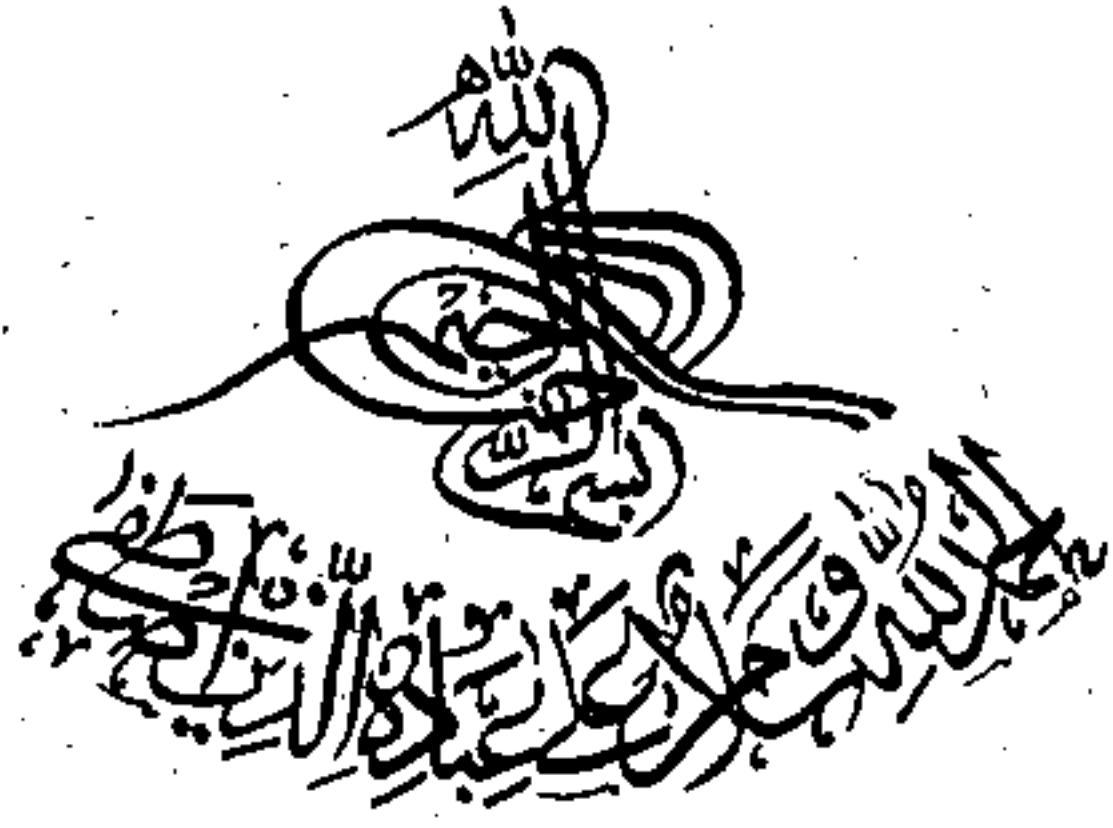 بسم الله الرحمن الرحيم
الحمد لله وكفى وسلام على عباده الذين اصطفى